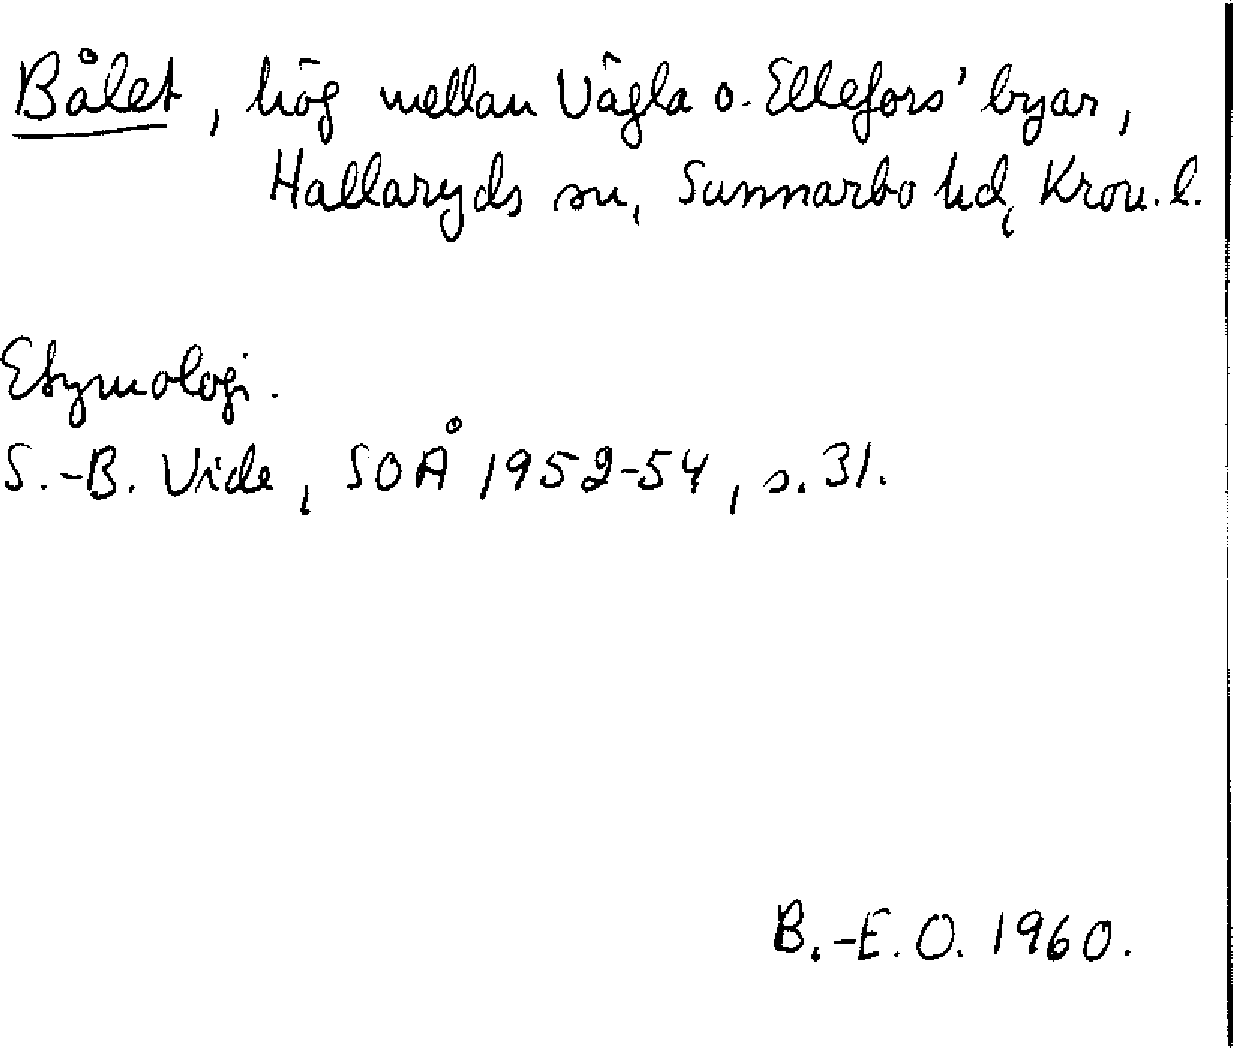 Bålet, hög mellan Vägla o. Ellefors' byar,
Hallaryds sn, Sunnarbo hd, Kron. l.
Etymologi.
S.-B. Vide, SOÅ 1952-54, s. 31.
B.-E. O. 1960.